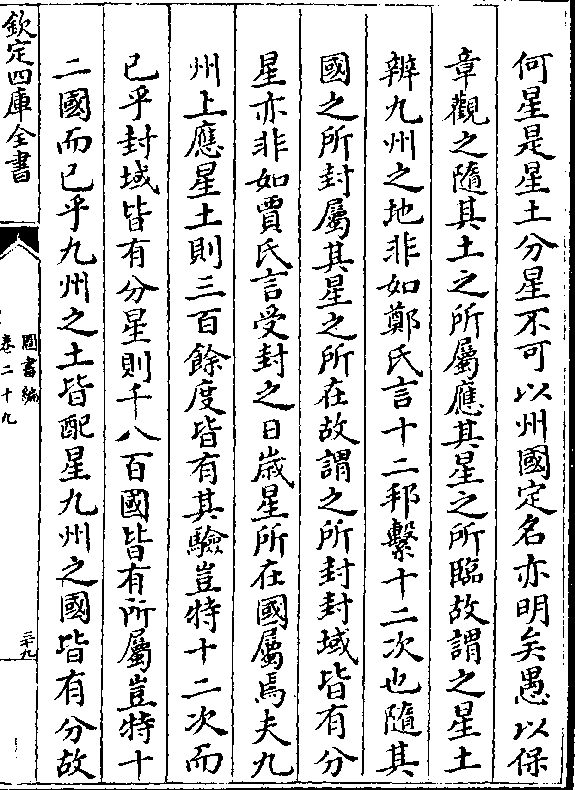 何星是星土分星不可以州國定名亦明矣愚以保
章觀之隨其土之所屬應其星之所臨故謂之星土
辨九州之地非如鄭氏言十二邦繫十二次也隨其
國之所封屬其星之所在故謂之所封封域皆有分
星亦非如賈氏言受封之日歲星所在國屬焉夫九
州上應星土則三百餘度皆有其驗豈特十二次而
已乎封域皆有分星則千八百國皆有所屬豈特十
二國而已乎九州之土皆配星九州之國皆有分故
欽定四庫全書
圖書編
卷二十九
三十九